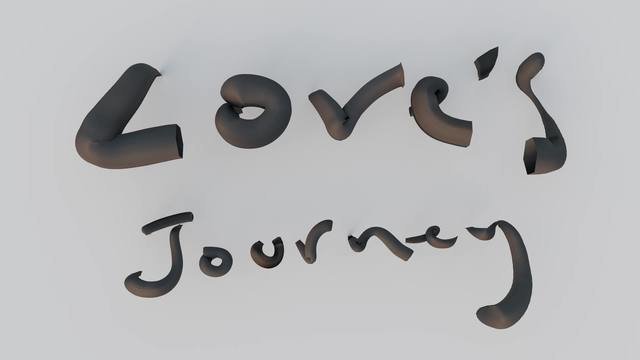 Love's
Journey